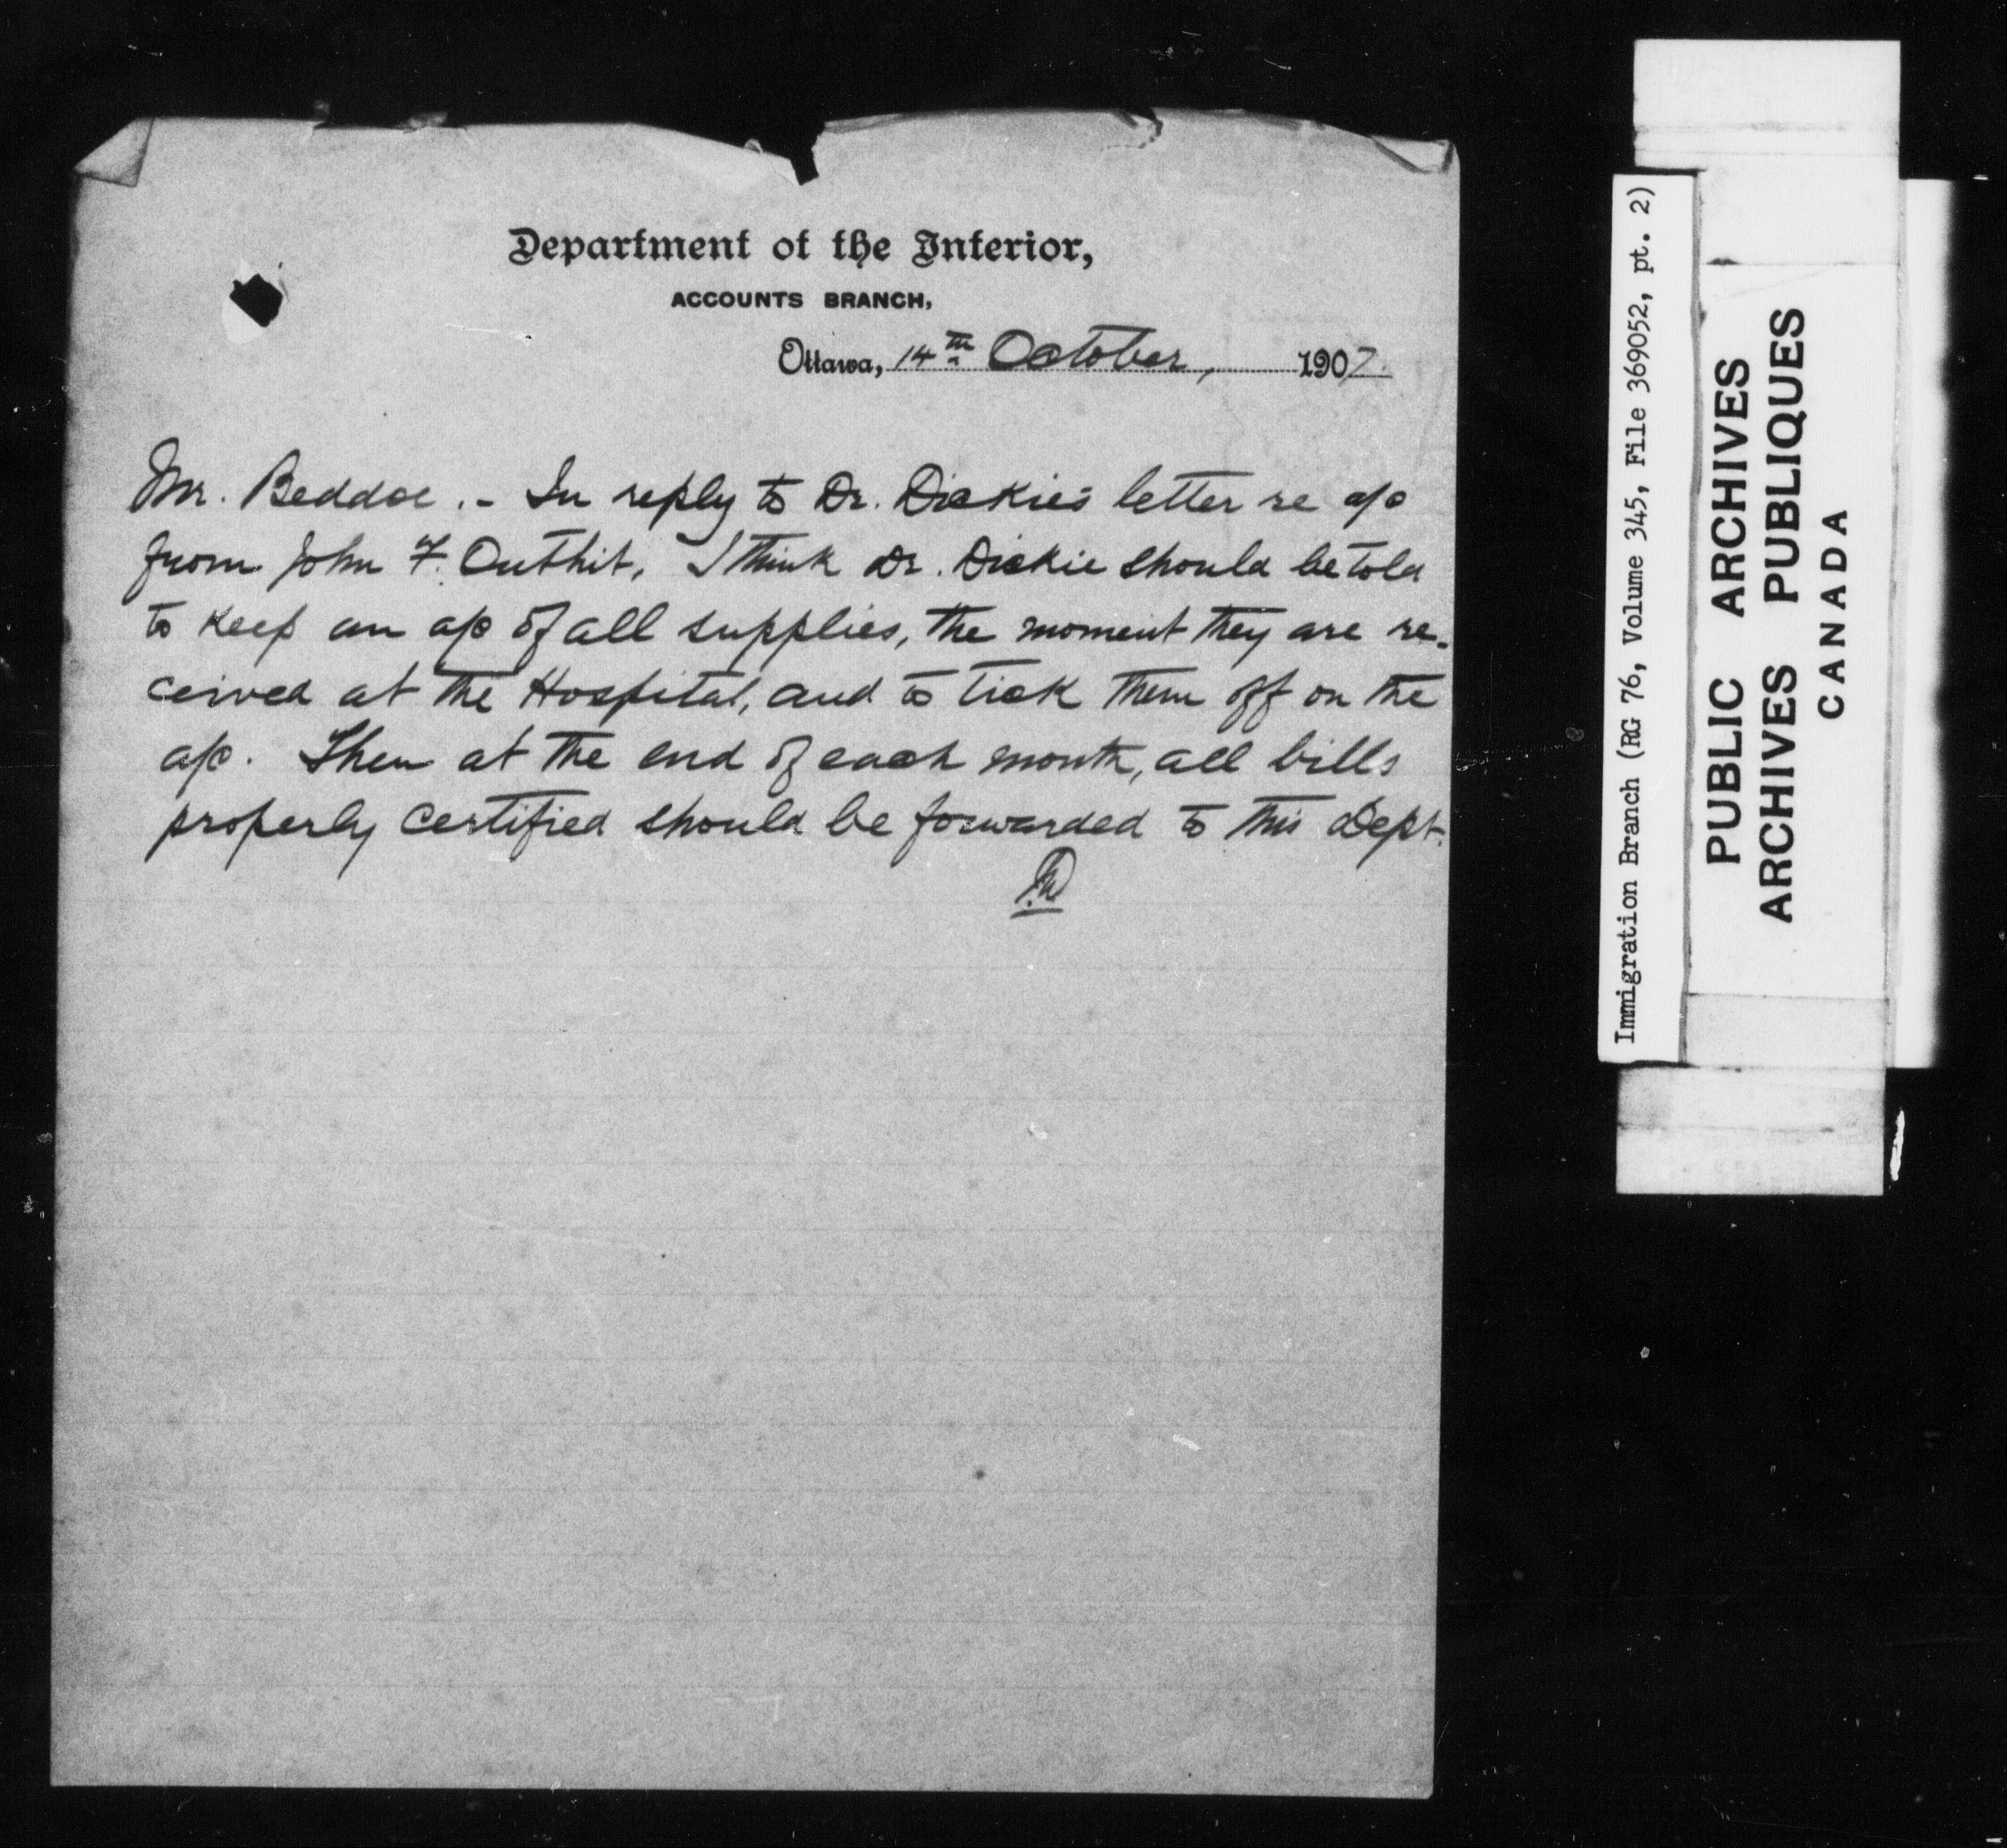 Department of the Interior,
ACCOUNTS BRANCH,
Ottawa, 14th October, 1907.
Mr. Beddoe. - In reply to Dr. Dickie's letter re a/c
from John F. Outhit, I think Dr. Dickie should be told
to keep an a/c of all supplies, the moment they are re-
ceived at the Hospital, and to tick them off on the
a/c. Then at the end of each month, all bills
properly certified should be forwarded to this Dept.
Immigration Branch (RG 76, Volume 345, File 369052, pt. 2)
PUBLIC ARCHIVES
ARCHIVES PUBLIQUES
CANADA